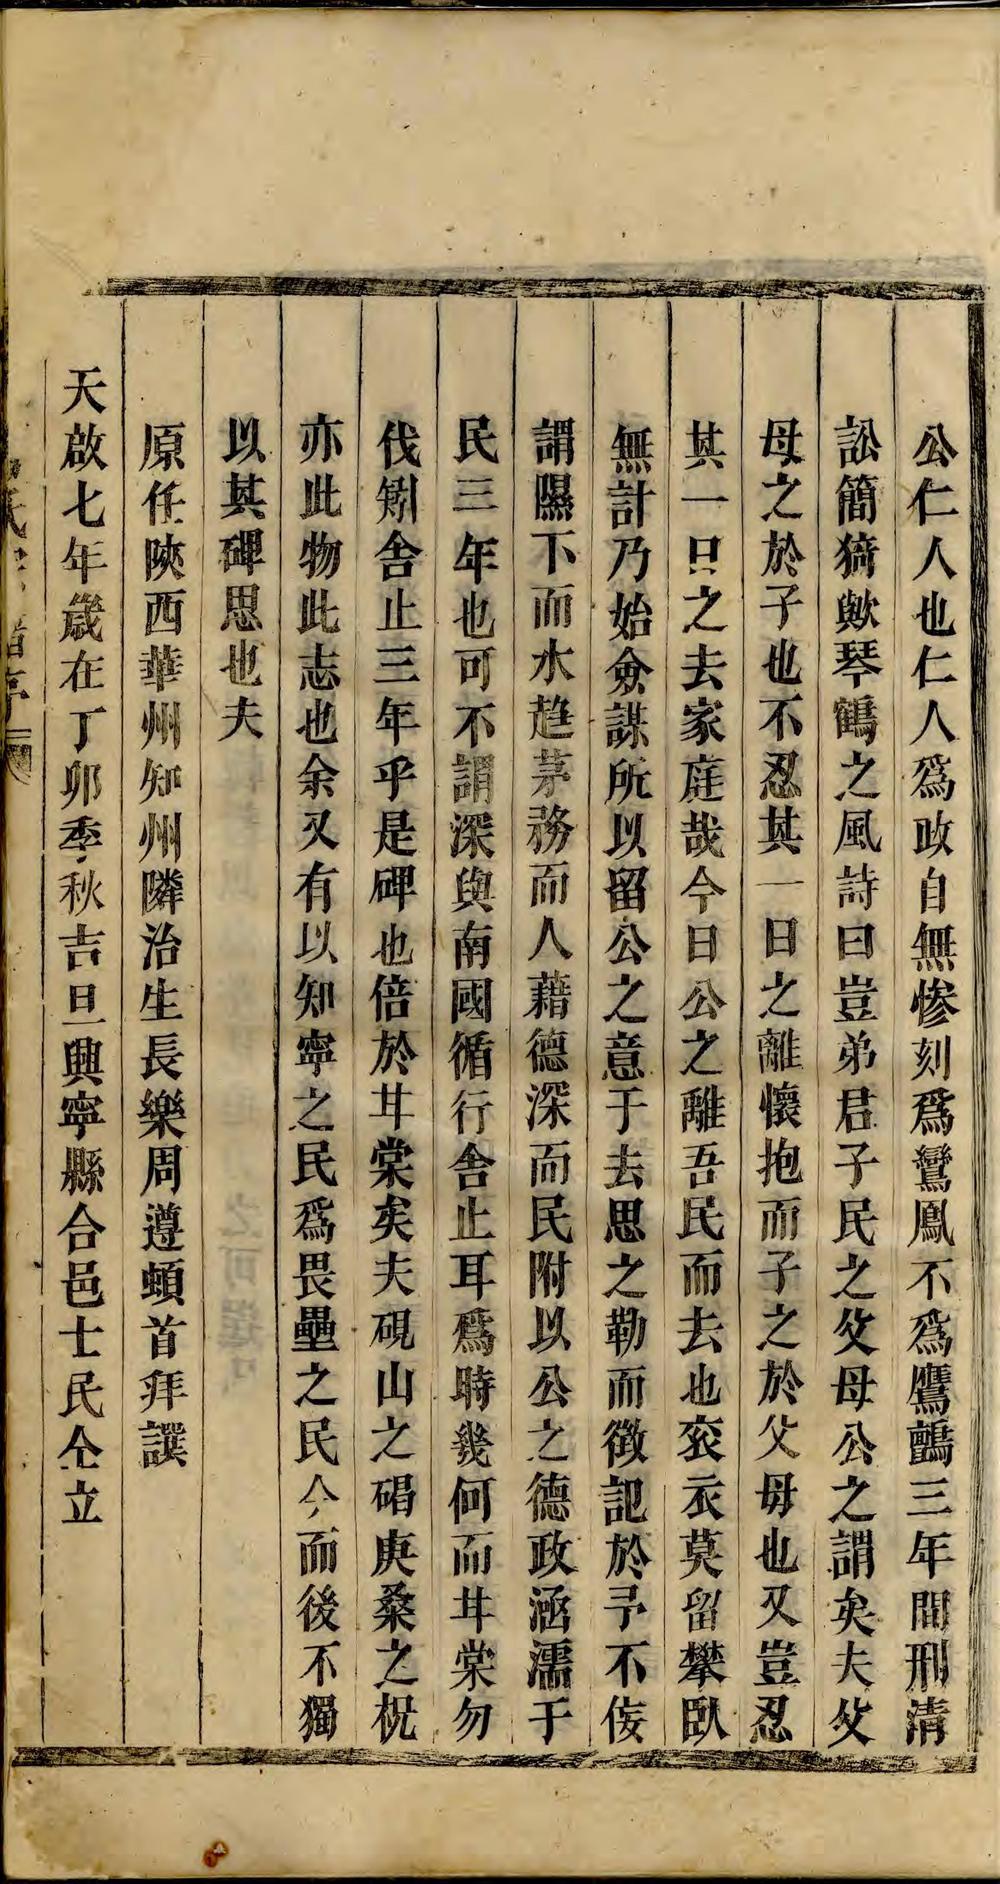 公仁人也仁人爲政自無慘刻爲鸞鳳不爲鷹鸇三年間刑清
訟簡猗歟琴鶴之風詩曰豈弟君子民之父母公之謂矣夫父
母之於子也不忍其一日之離懷抱而子之於父母也又豈忍
其一日之去家庭哉今日公之離吾民而去也袞衣莫留攀臥
無計乃始僉謀所以留公之意于去思之勒而徵記於予不佞
謂隰下而水趋茅務而人藉德深而民附以公之德政涵濡于
民三年也可不謂深與南國循行舍止耳爲時幾何而甘棠勿
伐矧舍止三年乎是碑也倍於甘棠矣夫硯山之碣庚桑之祝
亦此物此志也余又有以知寧之民爲畏壘之民今而後不獨
以其碑思也夫
原任陝西華州知州隣治生長樂周遵頓首拜譔
天啟七年歲在丁卯季秋吉旦興寧縣合邑士民仝立